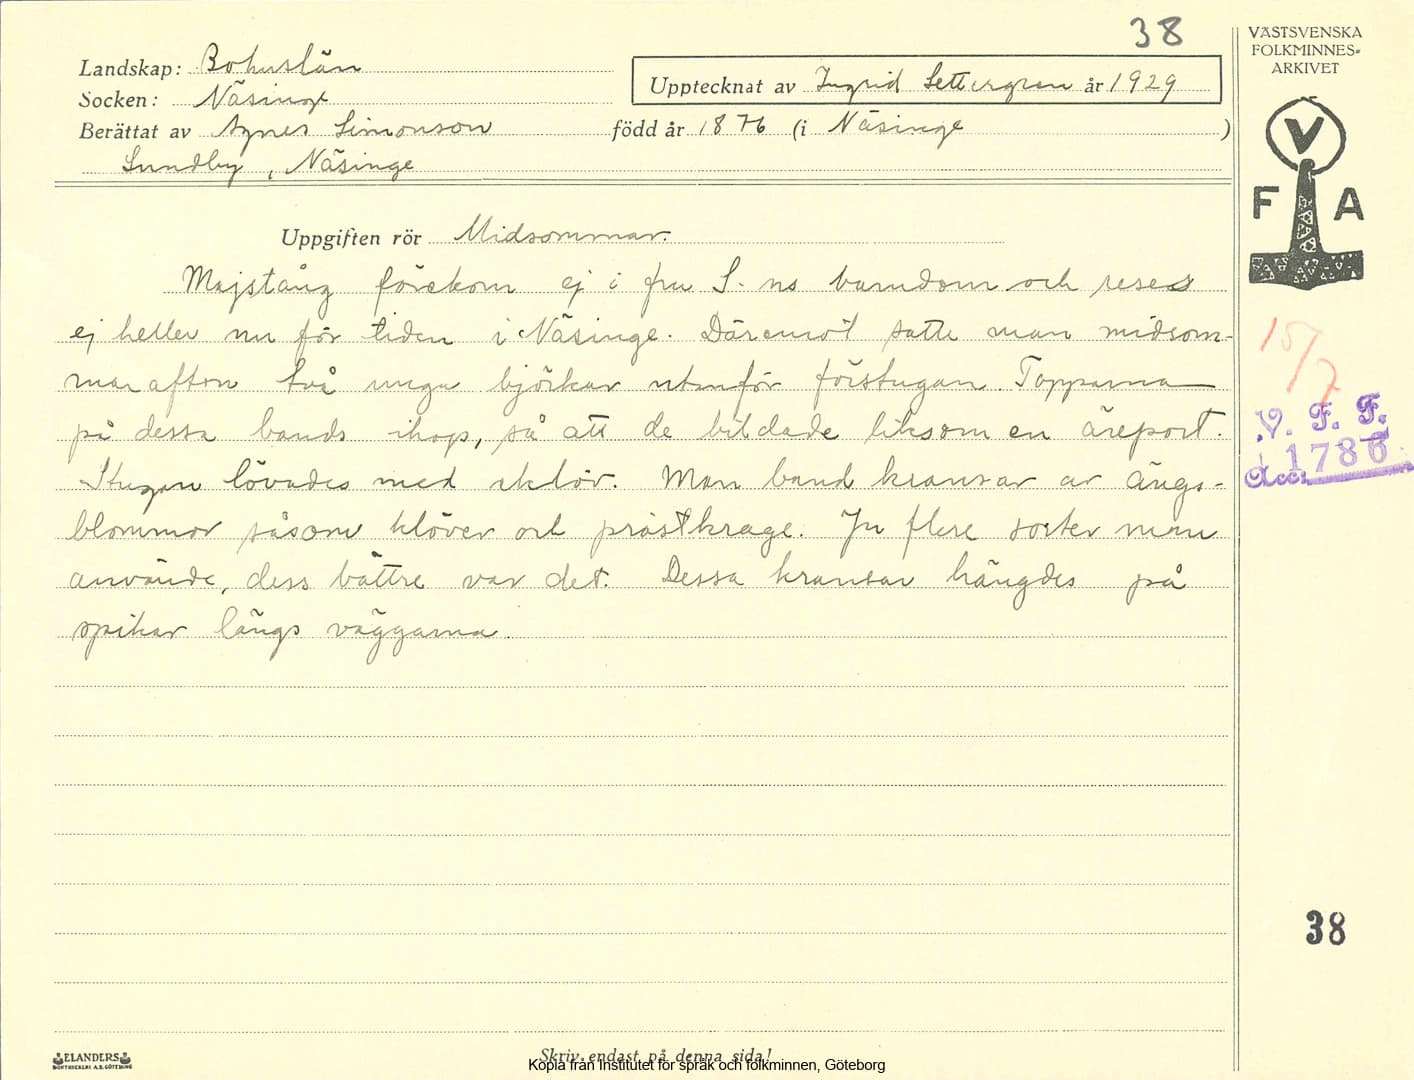 38
VÄSTSVENSKA
FOLKMINNES=
ARKIVET
Landskap: Bohuslän
Upptecknat av Ingrid Settergren år 1929
Socken: Näsinge
Berättat av Agnes Simonson född år 1876 (i Näsinge)
Sundby, Näsinge
V
F A
Uppgiften rör Midsommar.
Majstång förekom ej i fru S-ns barndom och reses
ej heller nu för tiden i Näsinge. Däremot satte man midsom-
marafton två unga björkar utanför förstugan. Topparna
på dessa bands ihop, så att de bildade liksom en äreport.
Stugan lövades med eklöv. Man band kransar av ängs-
blommor såsom klöver och prästkrage. Ju flere sorter man
använde, dess bättre var det. Dessa kransar hängdes på
spikar längs väggarna.
15/7
V. F. F.
1786
Acc.
38
ELANDERS
BOKTRYCKERI A.B. GÖTEBORG
Skriv endast på denna sida!
Kopia från Institutet för språk och folkminnen, Göteborg